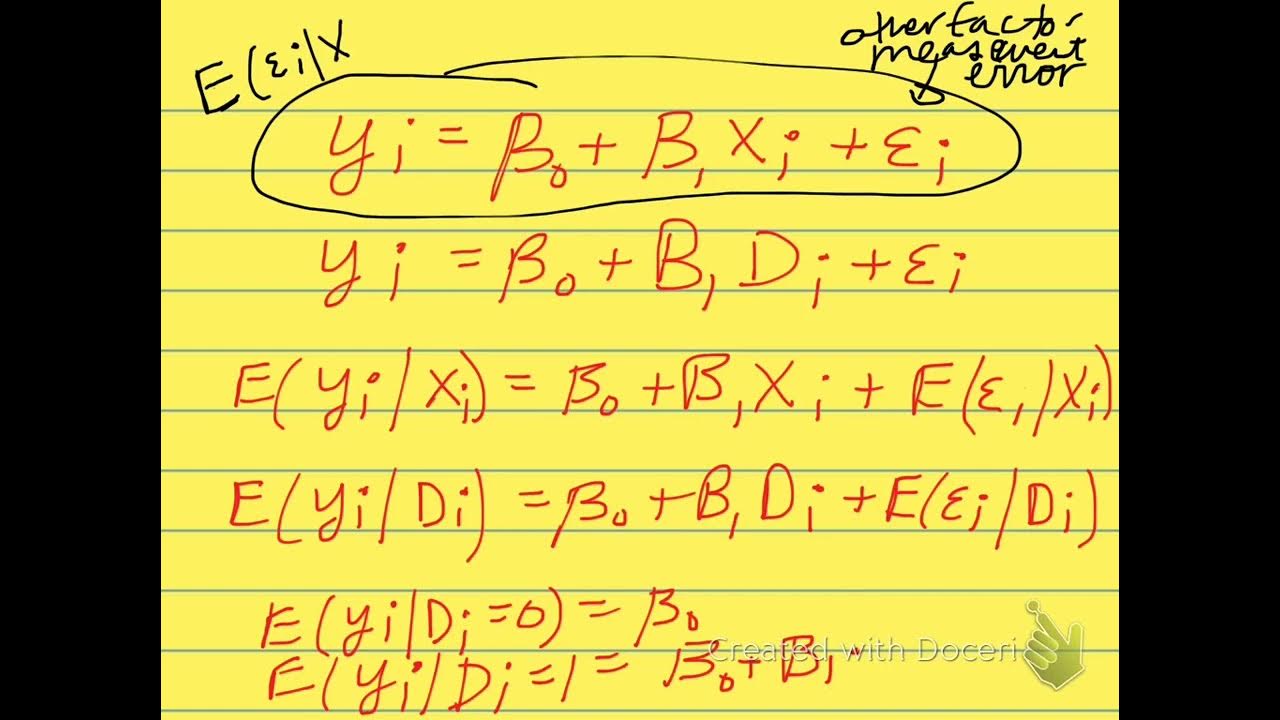 E(εi|X
other factor
measurement
error
yi = β0 + β1 Xi + εi
yi = β0 + β1 Di + εi
E(yi|Xi) = β0 + β1 Xi + E(εi|Xi)
E(yi|Di) = β0 + β1 Di + E(εi|Di)
E(yi|Di=0) = β0
E(yi|Di=1 = β0 + β1.
Created with Doceri